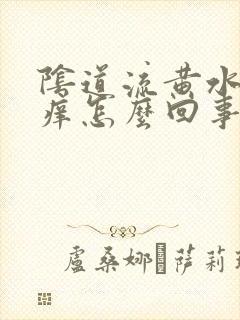 陰道流黃水
癢怎麼回事
盧桑娜·薩莉瑞